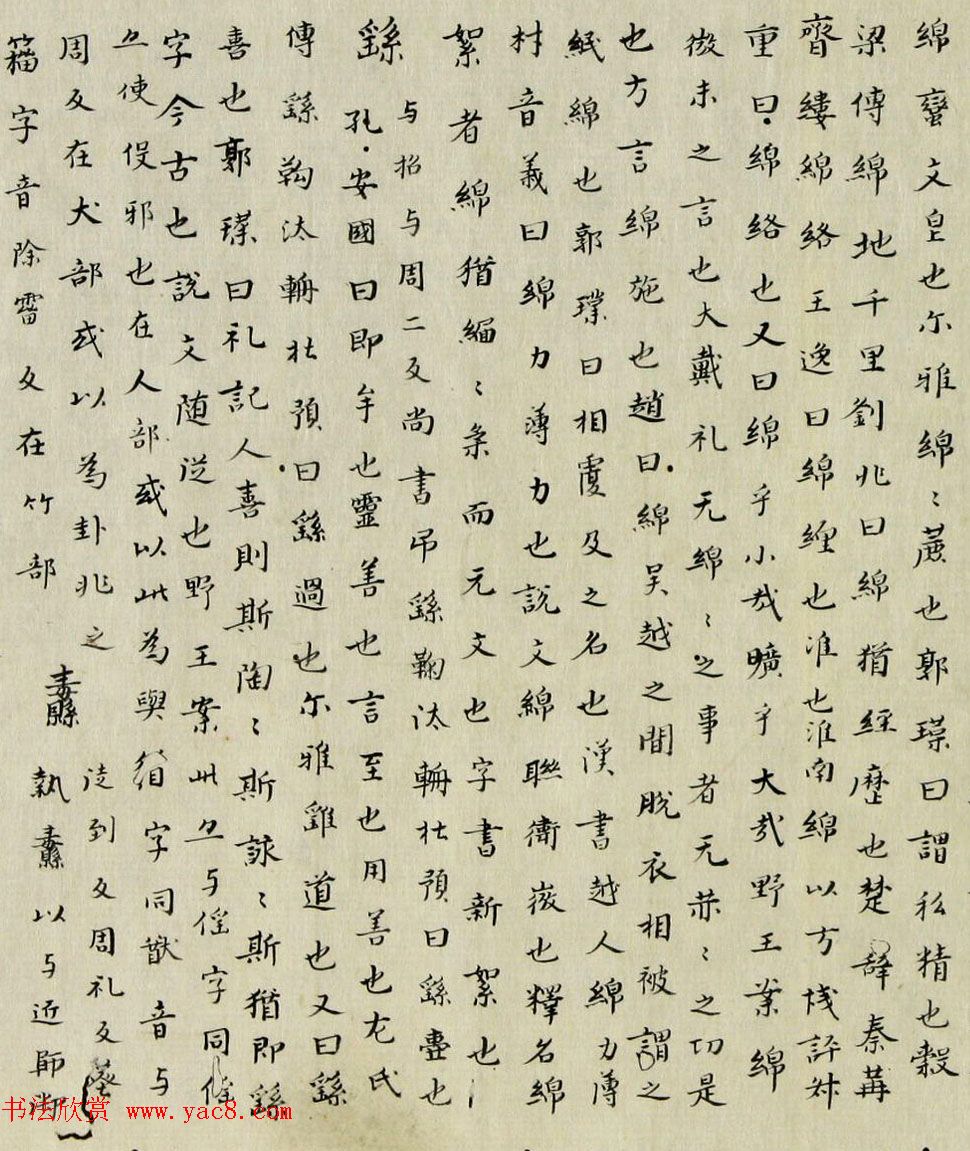 綿蠻文皇也尔雅綿〻藨也郭璞曰謂私精也穀
梁傳綿地千里劉兆曰綿猶經歷也楚辞秦篝
齊縷綿絡王逸曰綿纏也淮也淮南綿以方城許叔
重曰綿絡也又曰綿乎小哉曠乎大哉野王案綿
微末之言也大戴礼无綿〻之事者无恭〻之功是
也方言綿施也趙曰綿吴越之間脫衣相被謂之
緍綿也郭璞曰相覆及之名也漢書越人綿力薄
材音義曰綿力薄力也說文綿聯微也釋名綿
絮者綿猶緬〻柔而无文也字書新絮也
繇与招与周二反尚書弔繇鞠汰輈杜預曰繇盡也
孔安國曰即牟也靈善也言至也用善也尤氏
傳繇鞫汰輈杜預曰繇過也尔雅繇道也又曰繇
喜也郭璞曰礼記人喜則斯陶〻斯詠〻斯猶即繇
字今古也說文随從也野王案此又与傜字同傜
又使役邪也在人部或以此為輿繇字同猷音与
周反在犬部或以為卦兆之
籀字音除霤反在竹部
纛徒到反周礼及葬
執纛以与近師御
书法欣赏 www.yac8.com